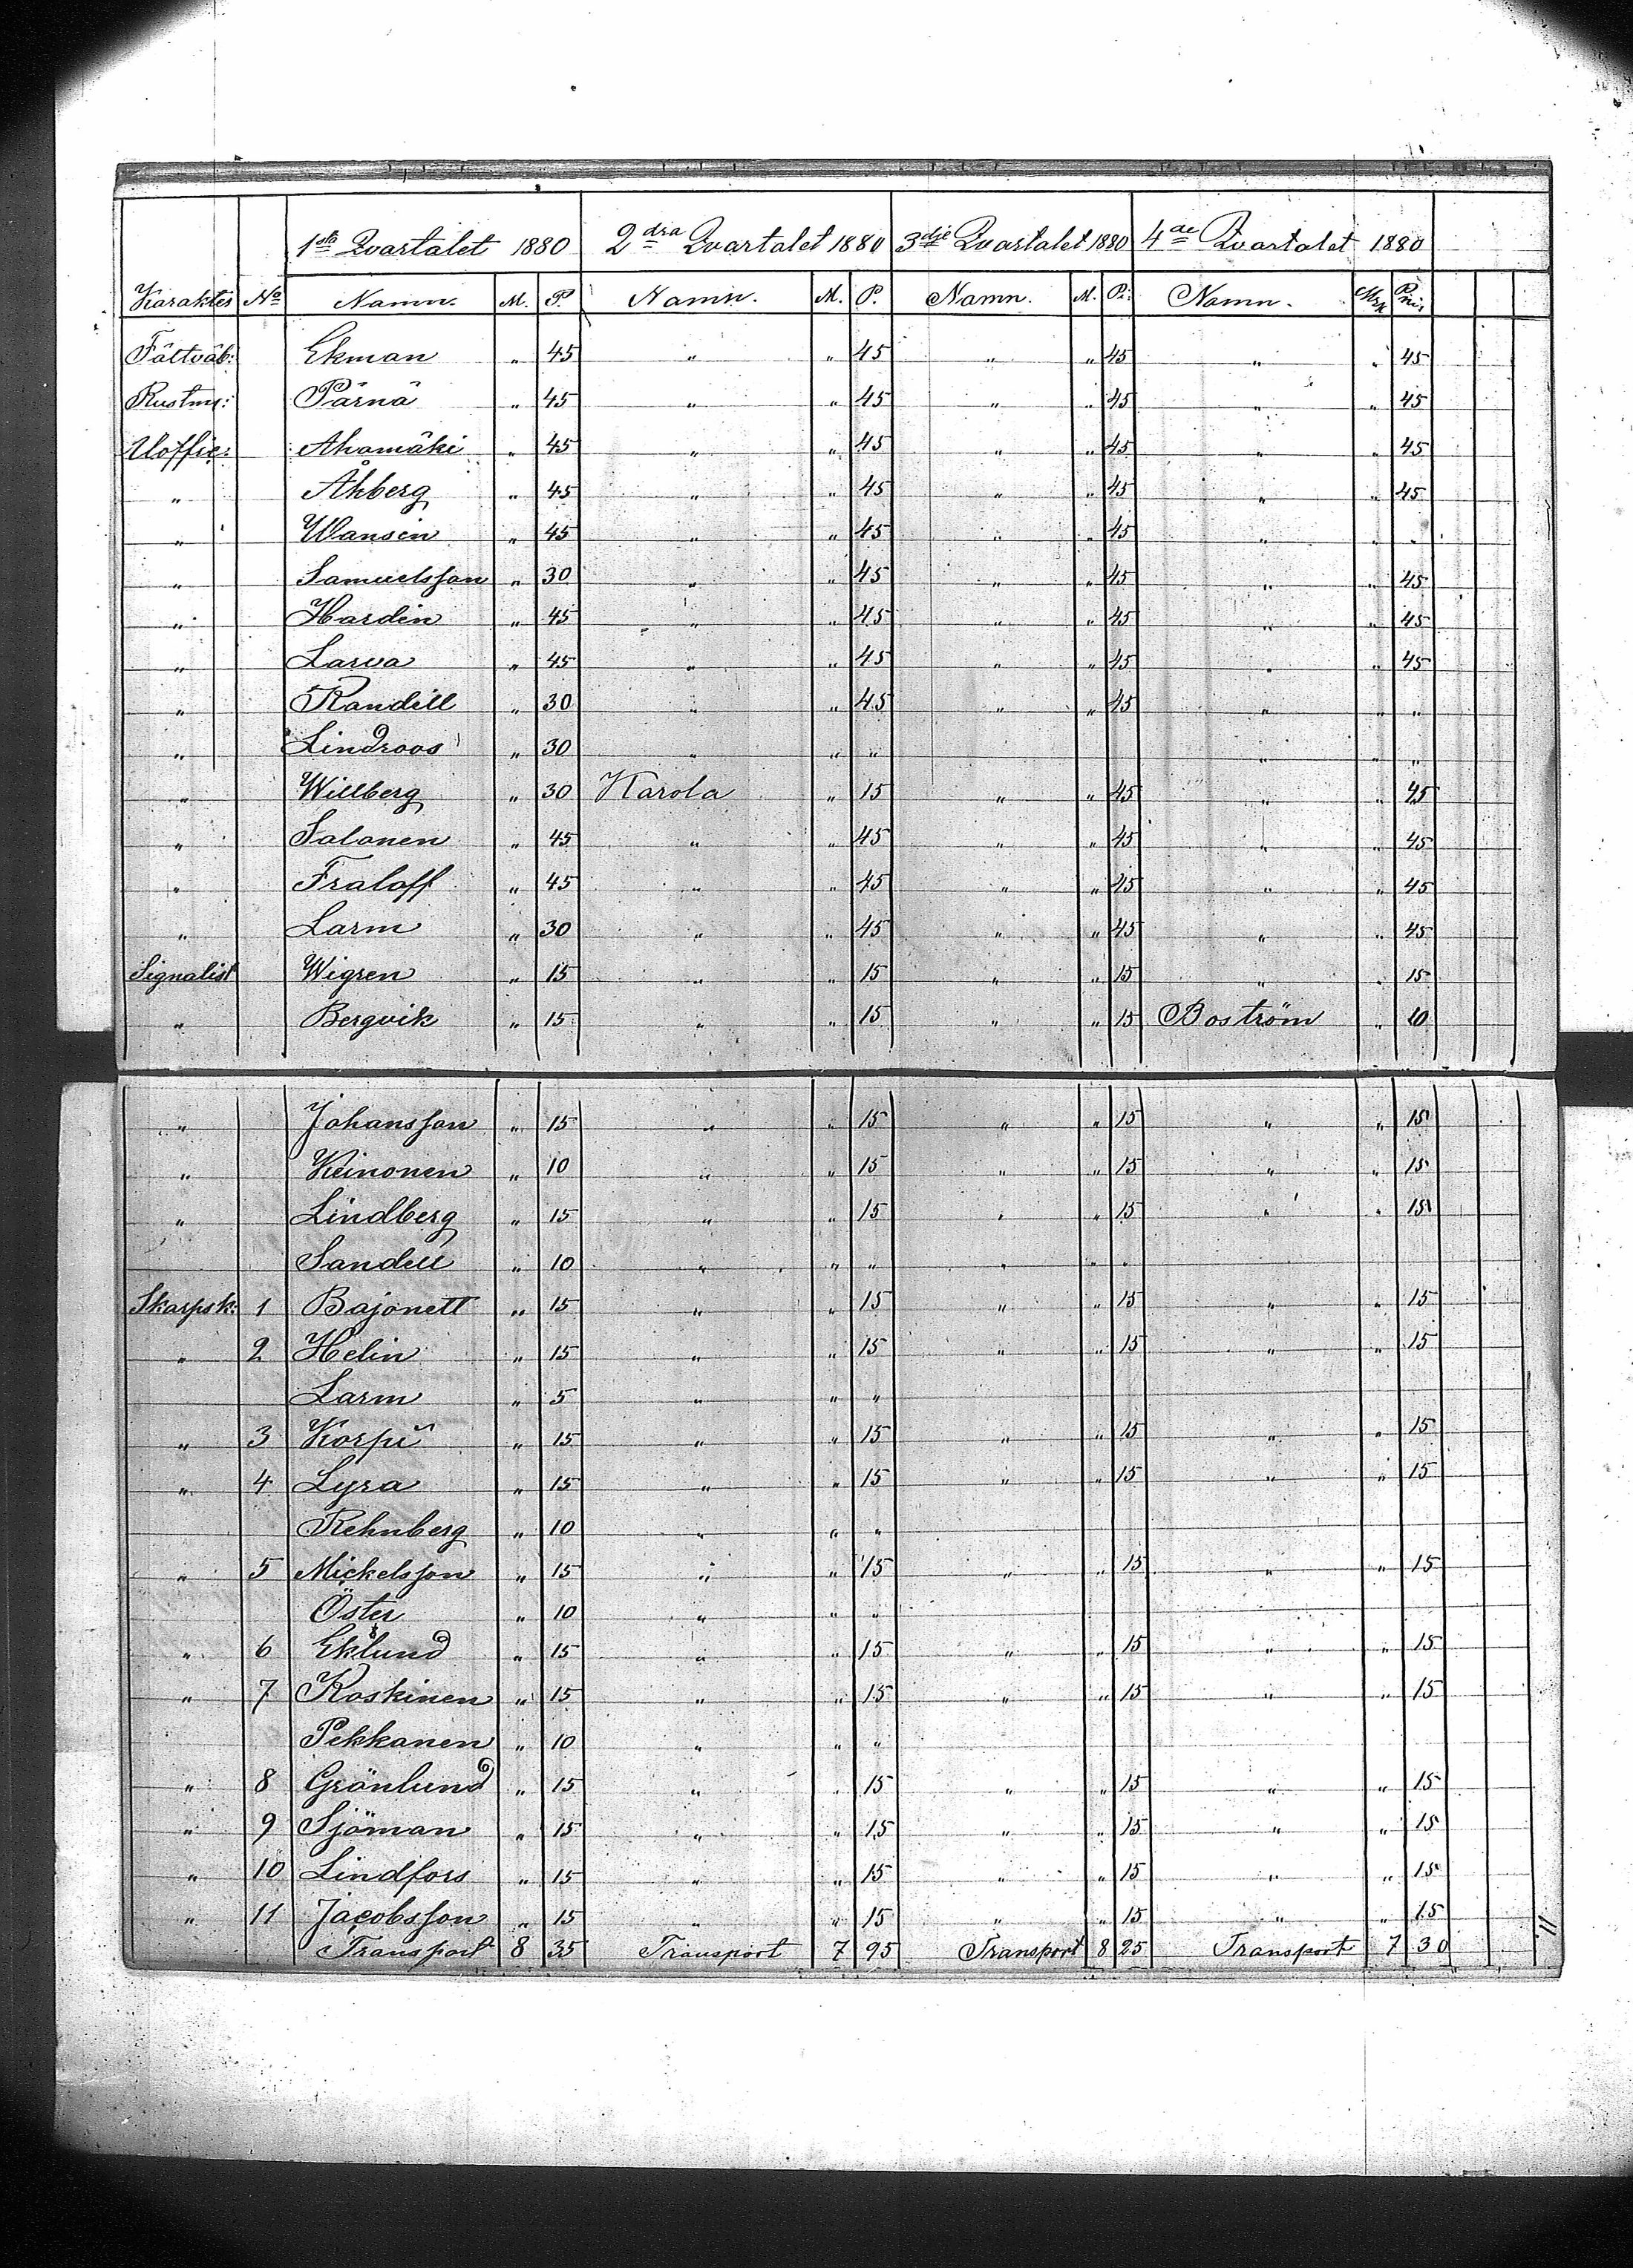 1sta Qvartalet 1880 2dra Qvartalet 1880 3dje Qvartalet 1880 4de Qvartalet 1880
Karakter No Namn. M. P. Namn. M. P. Namn. M. Pi: Namn. Mrk Pni,
Fältväb: Ekman " 45 " " 45 " " 45 " " 45
Rustm: Pärnä " 45 " " 45 " " 45 " " 45
Uoffic: Ahamäki " 45 " " 45 " " 45 " " 45
" Åkberg " 45 " " 45 " " 45 " " 45
" Wansen " 45 " " 45 " " 45 " " "
" Samuelsson " 30 " " 45 " " 45 " " 45
" Hardin " 45 " " 45 " " 45 " " 45
" Larva " 45 " " 45 " " 45 " " 45
" Randell " 30 " " 45 " " 45 " " "
" Lindroos " 30 " " " " " "
" Willberg " 30 Karola " 15 " " 45 " " 45
" Salonen " 45 " " 45 " " 45 " " 45
" Fraloff " 45 " " 45 " " 45 " " 45
" Larm " 30 " " 45 " " 45 " " 45
Signalist Wigren " 15 " " 15 " " 15 " " 15
" Bergvik " 15 " " 15 " " 15 Boström " 10
" Johansson " 15 " " 15 " " 15 " " 15
" Keinonen " 10 " " 15 " " 15 " " 15
" Lindberg " 15 " " 15 " " 15 " " 15
Sandell " 10 " " " " " "
Skarpsk: 1 Bajonett " 15 " " 15 " " 15 " " 15
" 2 Helin " 15 " " 15 " " 15 " " 15
Larm " 5 " " "
" 3 Korpi " 15 " " 15 " " 15 " " 15
" 4 Lyra " 15 " " 15 " " 15 " " 15
Rehnberg " 10 " " "
" 5 Mickelsson " 15 " " 15 " " 15 " " 15
Öster " 10 " " "
" 6 Eklund " 15 " " 15 " " 15 " " 15
" 7 Koskinen " 15 " " 15 " " 15 " " 15
Pekkanen " 10 " " "
" 8 Grönlund " 15 " " 15 " " 15 " " 15
" 9 Sjöman " 15 " " 15 " " 15 " " 15
" 10 Lindfors " 15 " " 15 " " 15 " " 15
" 11 Jacobsson " 15 " " 15 " " 15 " " 15
Transport 8 35 Transport 7 95 Transport 8 25 Transport 7 30